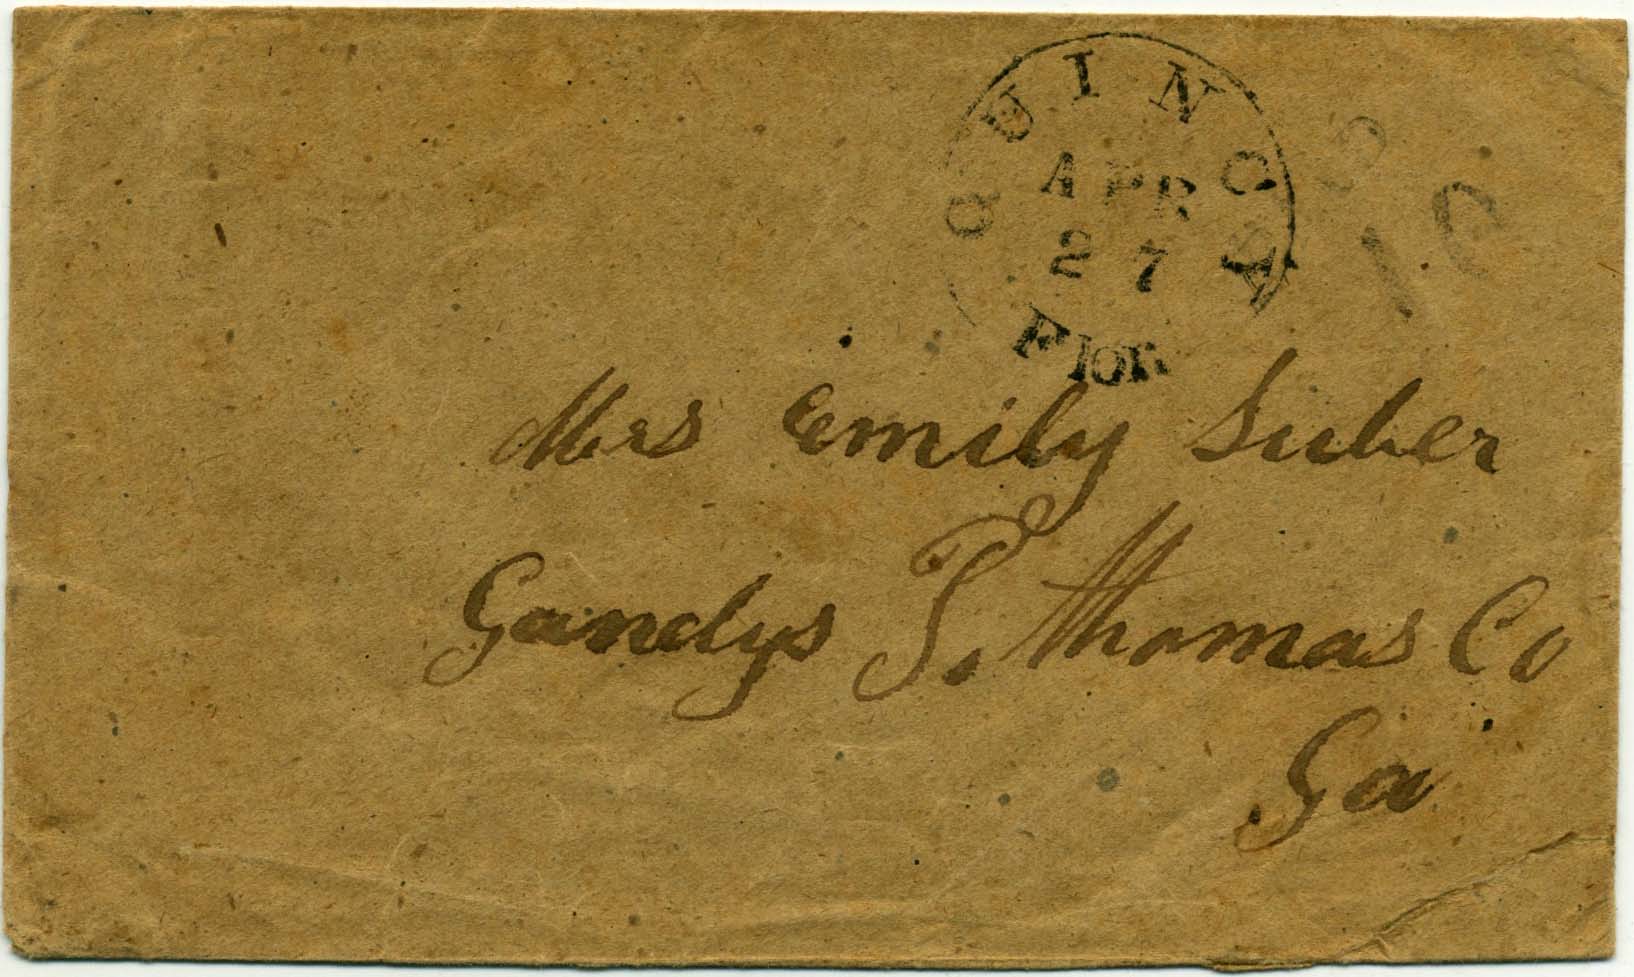 QUINCY
APR
27
Flor.
10
Mrs Emily Suber
Gandys P. Thomas Co
Ga